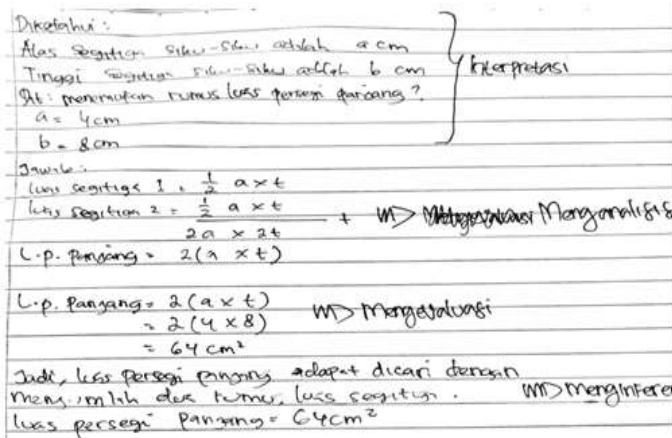 Diketahui :
Alas segitiga siku-siku adalah a cm
Tinggi segitiga siku-siku adalah b cm
Dit : menemukan rumus luas persegi panjang ?
a = 4 cm
b = 8 cm
Interpretasi
Jawab :
Luas segitiga 1 = 1/2 a × t
luas segitiga 2 = 1/2 a × t +
Menganalisis
2a × 2t
L.p. panjang = 2(a × t)
L.p. Panjang = 2(a × t)
= 2(4 × 8)
Mengevaluasi
= 64 cm²
Jadi, luas persegi panjang dapat dicari dengan
menjumlah dua rumus luas segitiga.
menginferen
luas persegi panjang = 64 cm²